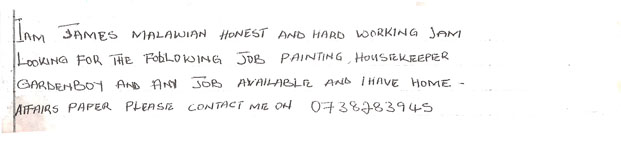 IAM JAMES MALAWIAN HONEST AND HARD WORKING IAM
LOOKING FOR THE FOLLOWING JOB PAINTING, HOUSEKEEPER
GARDENBOY AND ANY JOB AVAILABLE AND I HAVE HOME -
AFFAIRS PAPER PLEASE CONTACT ME ON 0738283945